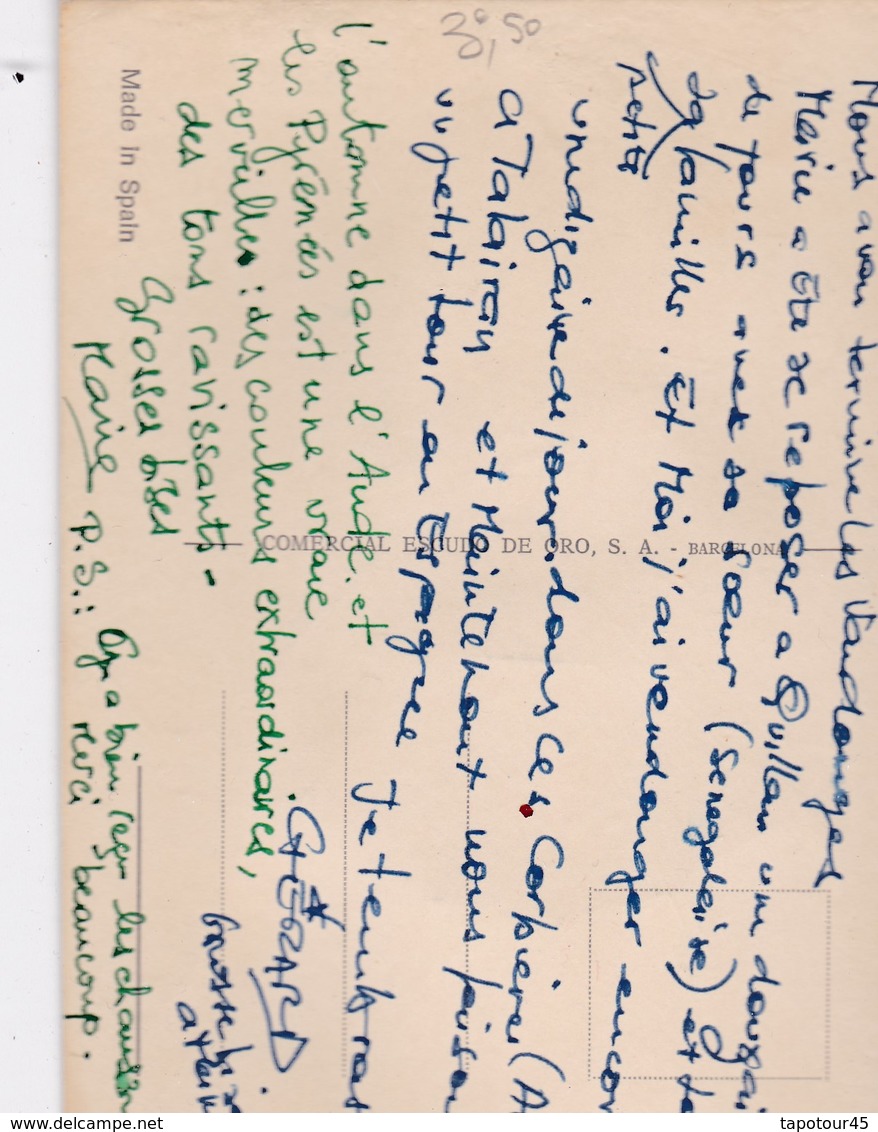 Nous avon terminé les Vandanges
Marie a Ete se reposer a Quillan une douzai
de jours avec sa sœur (Senegalaise) et
sa famille. Et Moi j'ai vendanger encor
petite
une digaine de jour. dans les Corbières (A
a Talairan et Maintenant nous faison
un petit tour en Espagne Je t'embras
GERARD
l'automne dans l'Aude et
les Pyrénées est une vraie
merveilles : des couleurs extraordinaires,
des tons ravissants.
Grosses bises
Marie
P.S.: On a bien reçu les chausson
Merci beaucoup.
Grosse
30,50
Made in Spain
COMERCIAL ESCUDO DE ORO, S. A. - BARCELONA
tapotour45